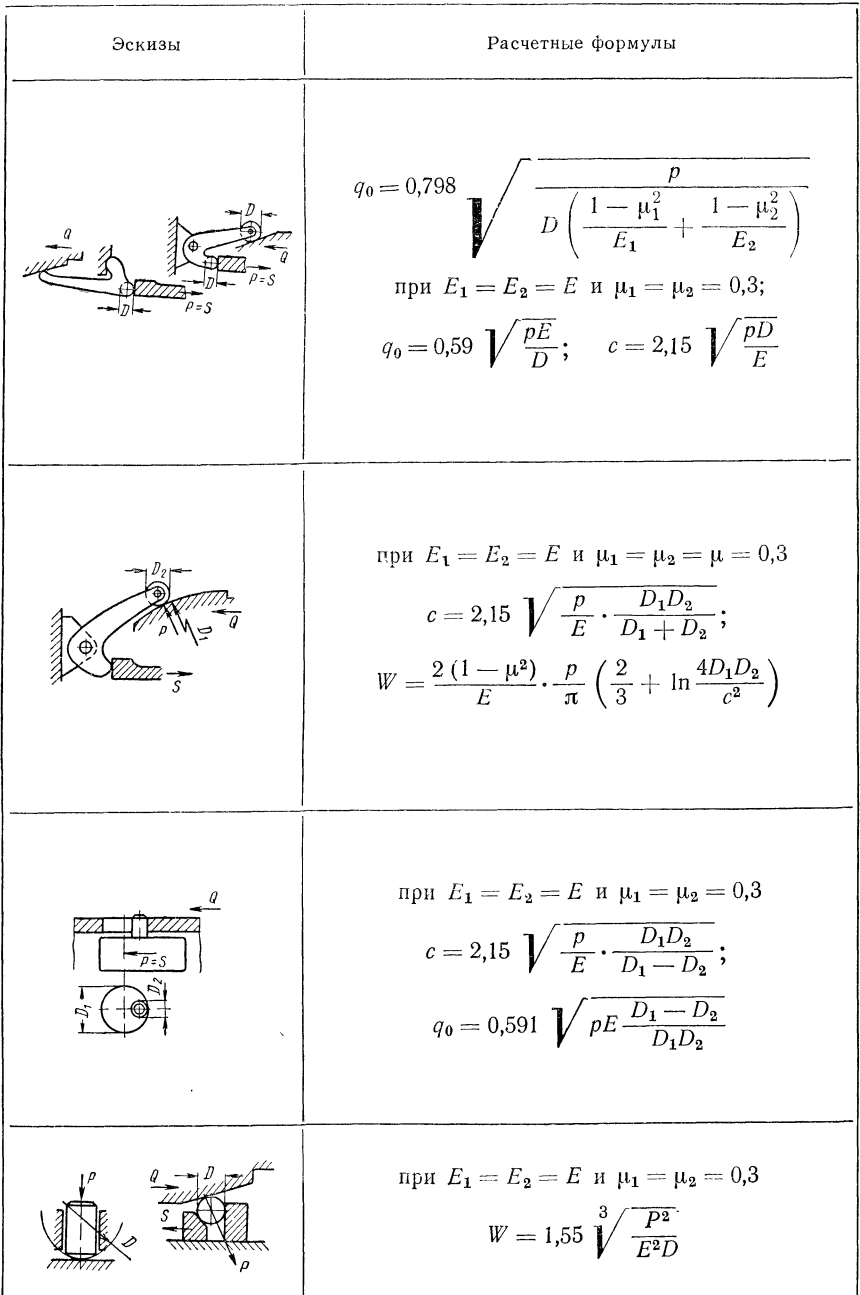 Эскизы
Расчетные формулы
Q
D
Q
D
P=S
D
P=S
q₀ = 0,798 √(p / (D ((1 − μ₁²)/E₁ + (1 − μ₂²)/E₂)))
при E₁ = E₂ = E и μ₁ = μ₂ = 0,3;
q₀ = 0,59 √(pE/D); c = 2,15 √(pD/E)
D₂
P
D₁
Q
S
при E₁ = E₂ = E и μ₁ = μ₂ = μ = 0,3
c = 2,15 √(p/E · D₁D₂/(D₁ + D₂));
W = 2 (1 − μ²)/E · p/π (2/3 + ln 4D₁D₂/c²)
Q
P=S
D₁
D₂
при E₁ = E₂ = E и μ₁ = μ₂ = 0,3
c = 2,15 √(p/E · D₁D₂/(D₁ − D₂));
q₀ = 0,591 √(pE (D₁ − D₂)/(D₁D₂))
P
D
Q
D
S
P
при E₁ = E₂ = E и μ₁ = μ₂ = 0,3
W = 1,55 ∛(P²/(E²D))